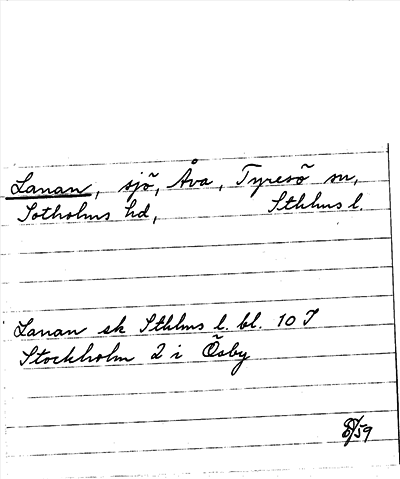 Lanan, sjö, Åva, Tyresö sn,
Sotholms hd, Sthlms l.
Lanan sk Sthlms l. bl. 10 I
Stockholm 2 i Ösby
/59